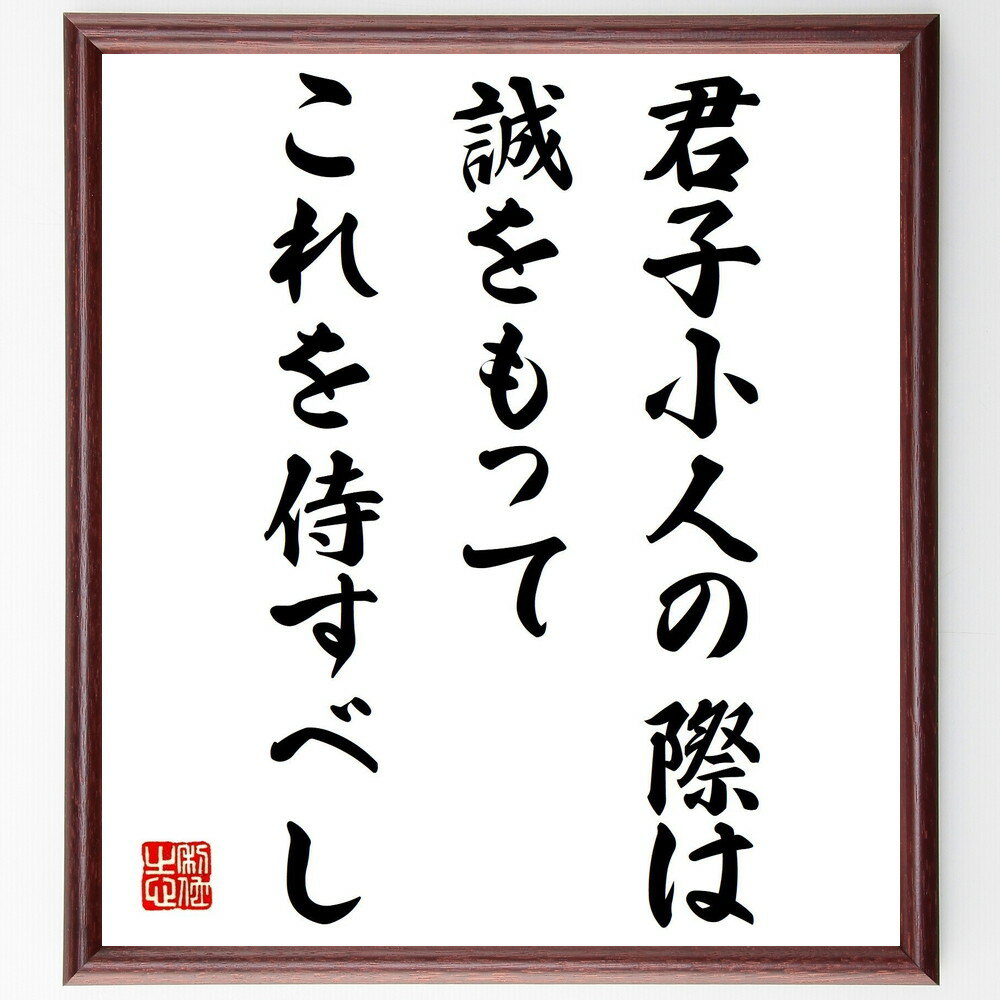 君子小人の際は
誠をもって
これを侍すべし